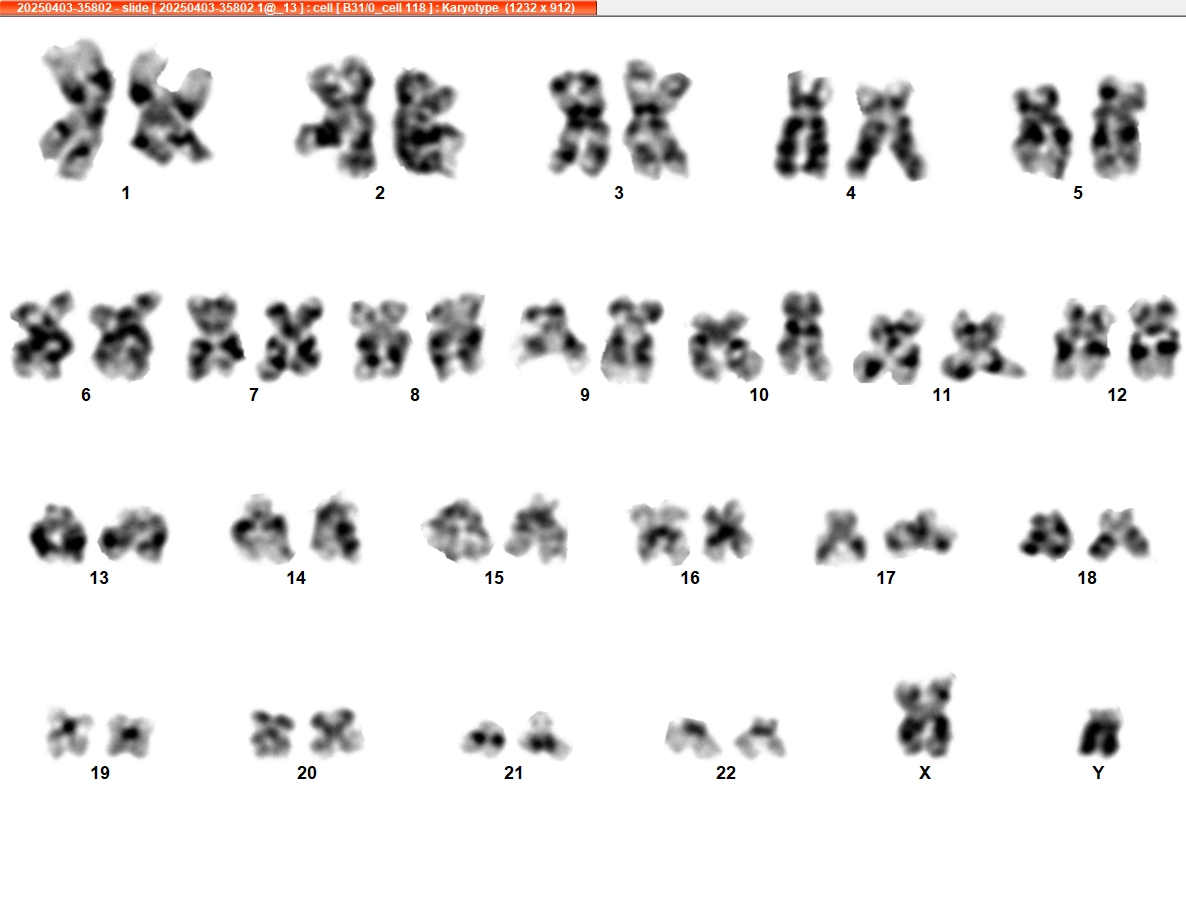 20250403-35802 - slide [ 20250403-35802 1@_13 ] : cell [ B31/0_cell 118 ] : Karyotype (1232 x 912)
1 2 3 4 5
6 7 8 9 10 11 12
13 14 15 16 17 18
19 20 21 22 X Y